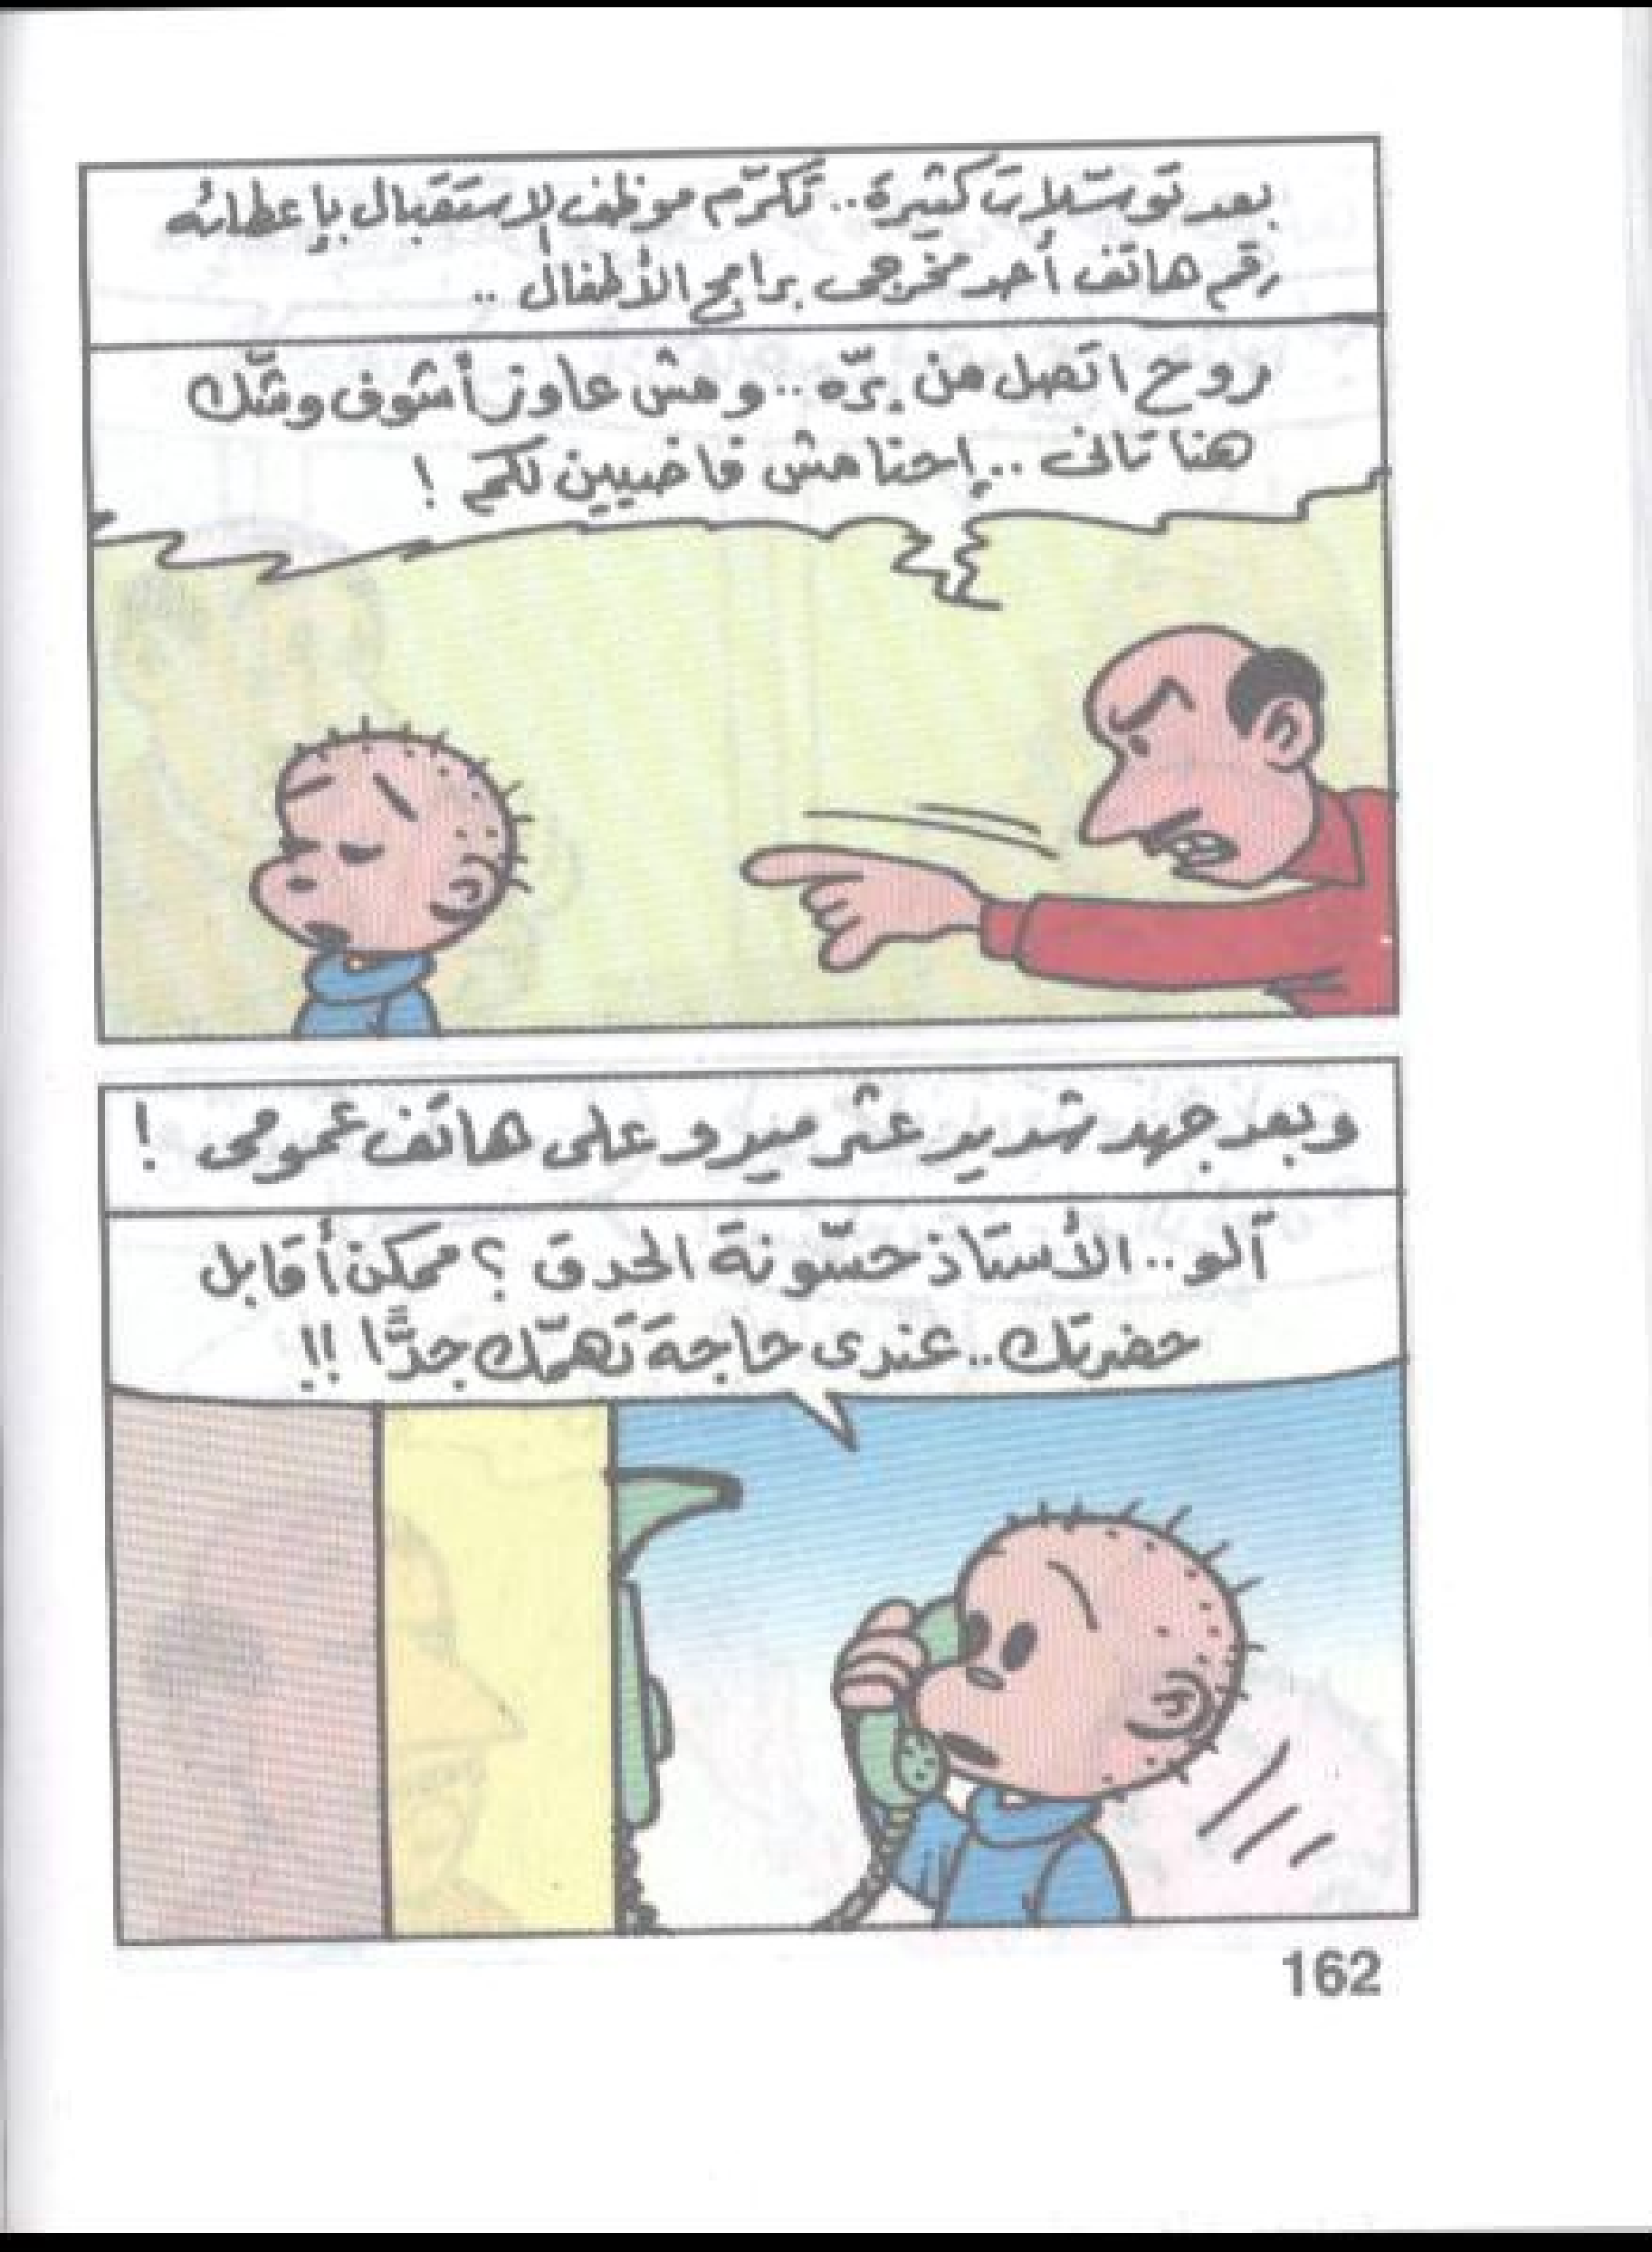 بعد توسّلات كثيرة.. تكرّم موظف الاستقبال بإعطائه
رقم هاتف أحد مخرجى برامج الأطفال ..
روح اتصل من برّه.. ومش عاوز أشوف وشّك
هنا تانى .. إحنا مش فاضيين لكم !
وبعد جهد شديد عثر ميدو على هاتف عمومى !
آلو.. الأستاذ حسّونة الحدق ؟ ممكن أقابل
حضرتك.. عندى حاجة تهمّك جدًّا !!
162